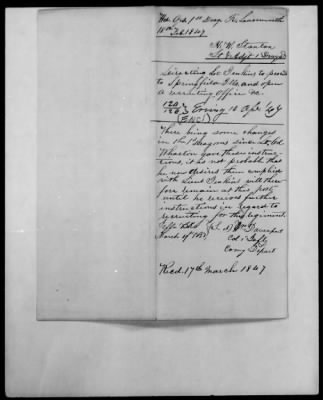 Hd. Qrs. 1st Drag. Ft. Leavenworth
18th Feb. 1847
H. W. Stanton
Lt. & Adjt. 1 Drag's
Directing Lt. Jenkins to proceed
to Springfield Ills. and open
a recruiting office &c.
(Enc 1)
There being some changes
in the 1st Dragoons since Lt. Col
Wharton gave these instruc
tions, it is not probable that
he now desires them complied
with Lieut Jenkins will there
fore remain at this post
until he receives further
instructions in regard to
recruiting for his regiment.
Jeff. Bks
March 17th 1847
Davenport
Col 1 Inf
Comg Depart
Recd. 17th March 1847